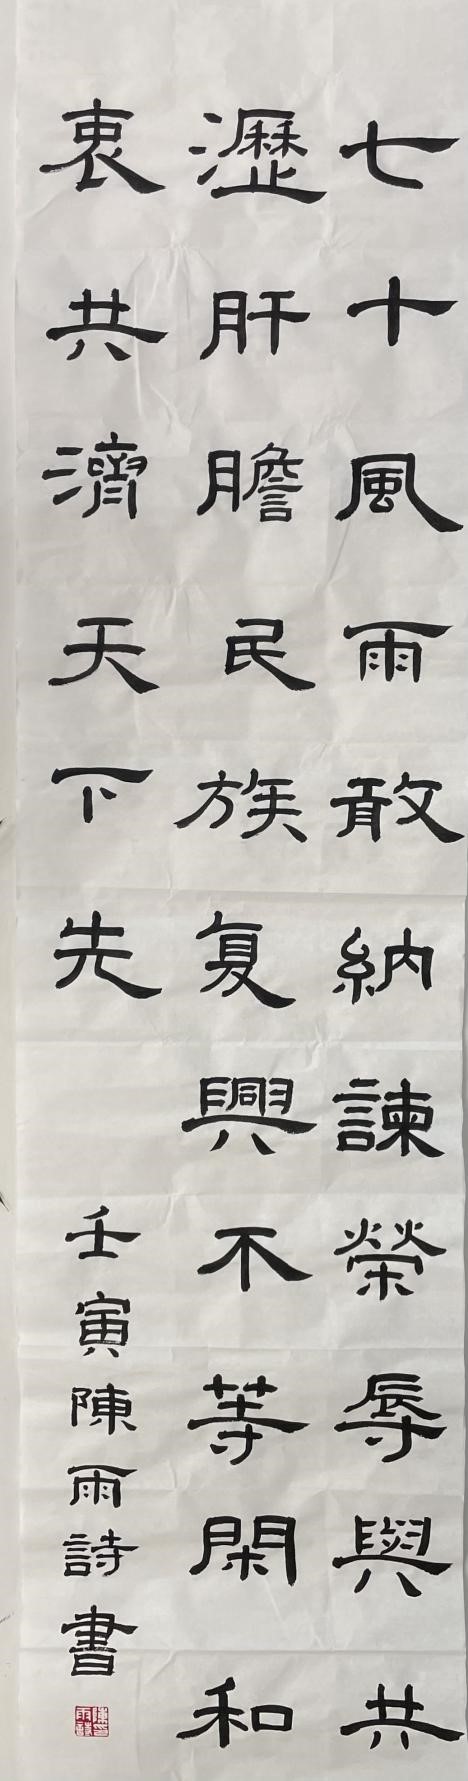 七十風雨敢納諫榮辱與共
瀝肝膽民族复興不等閑和
衷共濟天下先
壬寅陳雨詩書